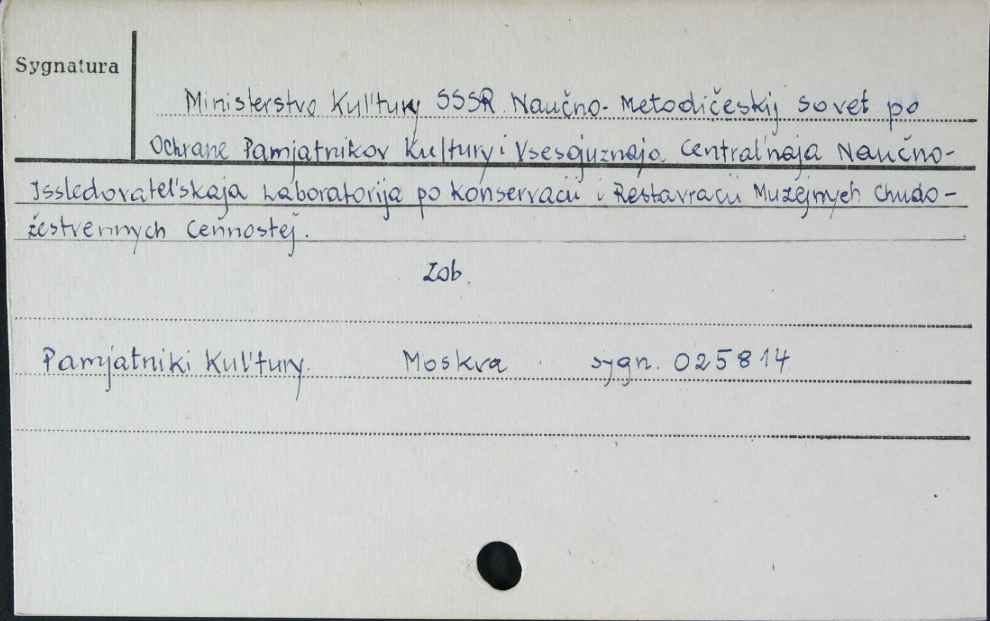 Sygnatura
Ministerstvo Kul'tury SSSR Naučno-Metodičeskij sovet po
Ochrane Pamjatnikov Kul'tury i Vsesojuznaja Central'naja Naučno-
Issledovatel'skaja Laboratorija po Konservacii i Restavracii Muzejnych Chudo-
žestvennych Cennostej.
Zob.
Pamjatniki Kul'tury. Moskva sygn. 025814